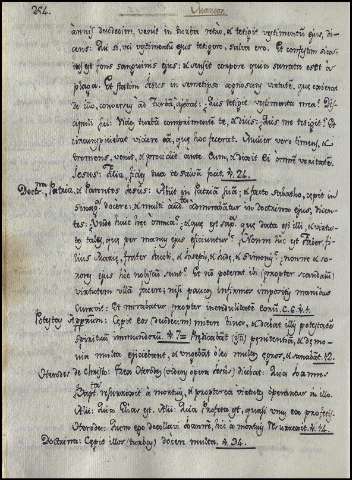 254.
annis duodecim, venit in turba retro, et tetigit vestimentum ejus, di-
cens: Qui si vel vestimentum ejus tetigero, salva ero. Et confestim sica-
est fons sanguinis ejus: et sensit corpore quia sanata esset à
plaga. Et statim Jesus in semetipso virtutē, que exierat
de illo, conversus ad turbā, ajebat: Quis tetigit vestimenta mea? Dis-
cipuli sui: Vides turbā comprimentē te, et dicis: Quis me tetigit? Et
circumspiciebat videre eā, que hoc fecerat. Mulier vero timens, et
tremens, venit, et procidit ante eum, et dixit ei omnē veritatē.
Jesus: Filia, fides tua te salvā fecit. 4. 26.
Patria, et Parentes Jesus: Abiit in patriā suā; et facto sabatho, cepit in
Sinagoga docere: et multi admirabantur in doctrina ejus, dicen-
tes: Unde huic hec omnia? et que est sapia que data est illi, et virtu-
tes tales, que per manus ejus efficiuntur? Nonne hic est Faber fi-
lius Marie, frater Jacobi, et Joseph, et Jude, et Simonis? nonne et so-
rores ejus hic nobiscū sunt? Et nō poterat ibi propter
virtutem ullā facere; nisi paucos infirmos impositis manibus
curavit: Et mirabatur propter incredulitatē eorū. C. 6. 4. 1.
Potestas Appostorum: Cepit eos (duodecim) mitere binos, et dabat illis potestatem
spirituū immundorū. 4. 7. Predicabāt penitentiā, et demo-
nia multa ejiciebant, et ungebāt oleo multos egros, et sanabāt. 12.
Herodes de Christo: Rex Herodes dicebat: Quia Joannes
Bapt. resurrexit à mortuis, et propterea virtutes operantur in illo.
Alii: Quia Elias est. Alii: Quia Profeta est, quasi unus ex profetis.
Herodes: Quem ego decollavi Joannē, hic à mortuis resurrexit. 4. 14.
Doctrina: Cepit illos (turbas) docere multa. 4. 34.